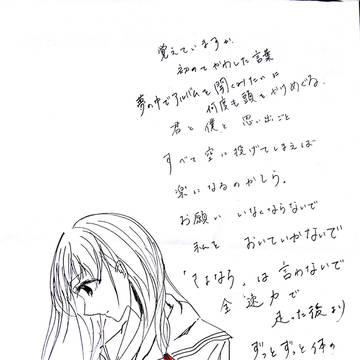 覚えていますか
初めてかわした言葉
夢の中でアルバムを開くみたいに
何度も頭をかけめぐる。
君と僕と思い出ごと
すべて空に投げてしまえば
楽になるのかしら。
お願い いなくならないで
私をおいていかないで
「さよなら」は言わないで
全速力で
走った後より
ずっとずっと体の